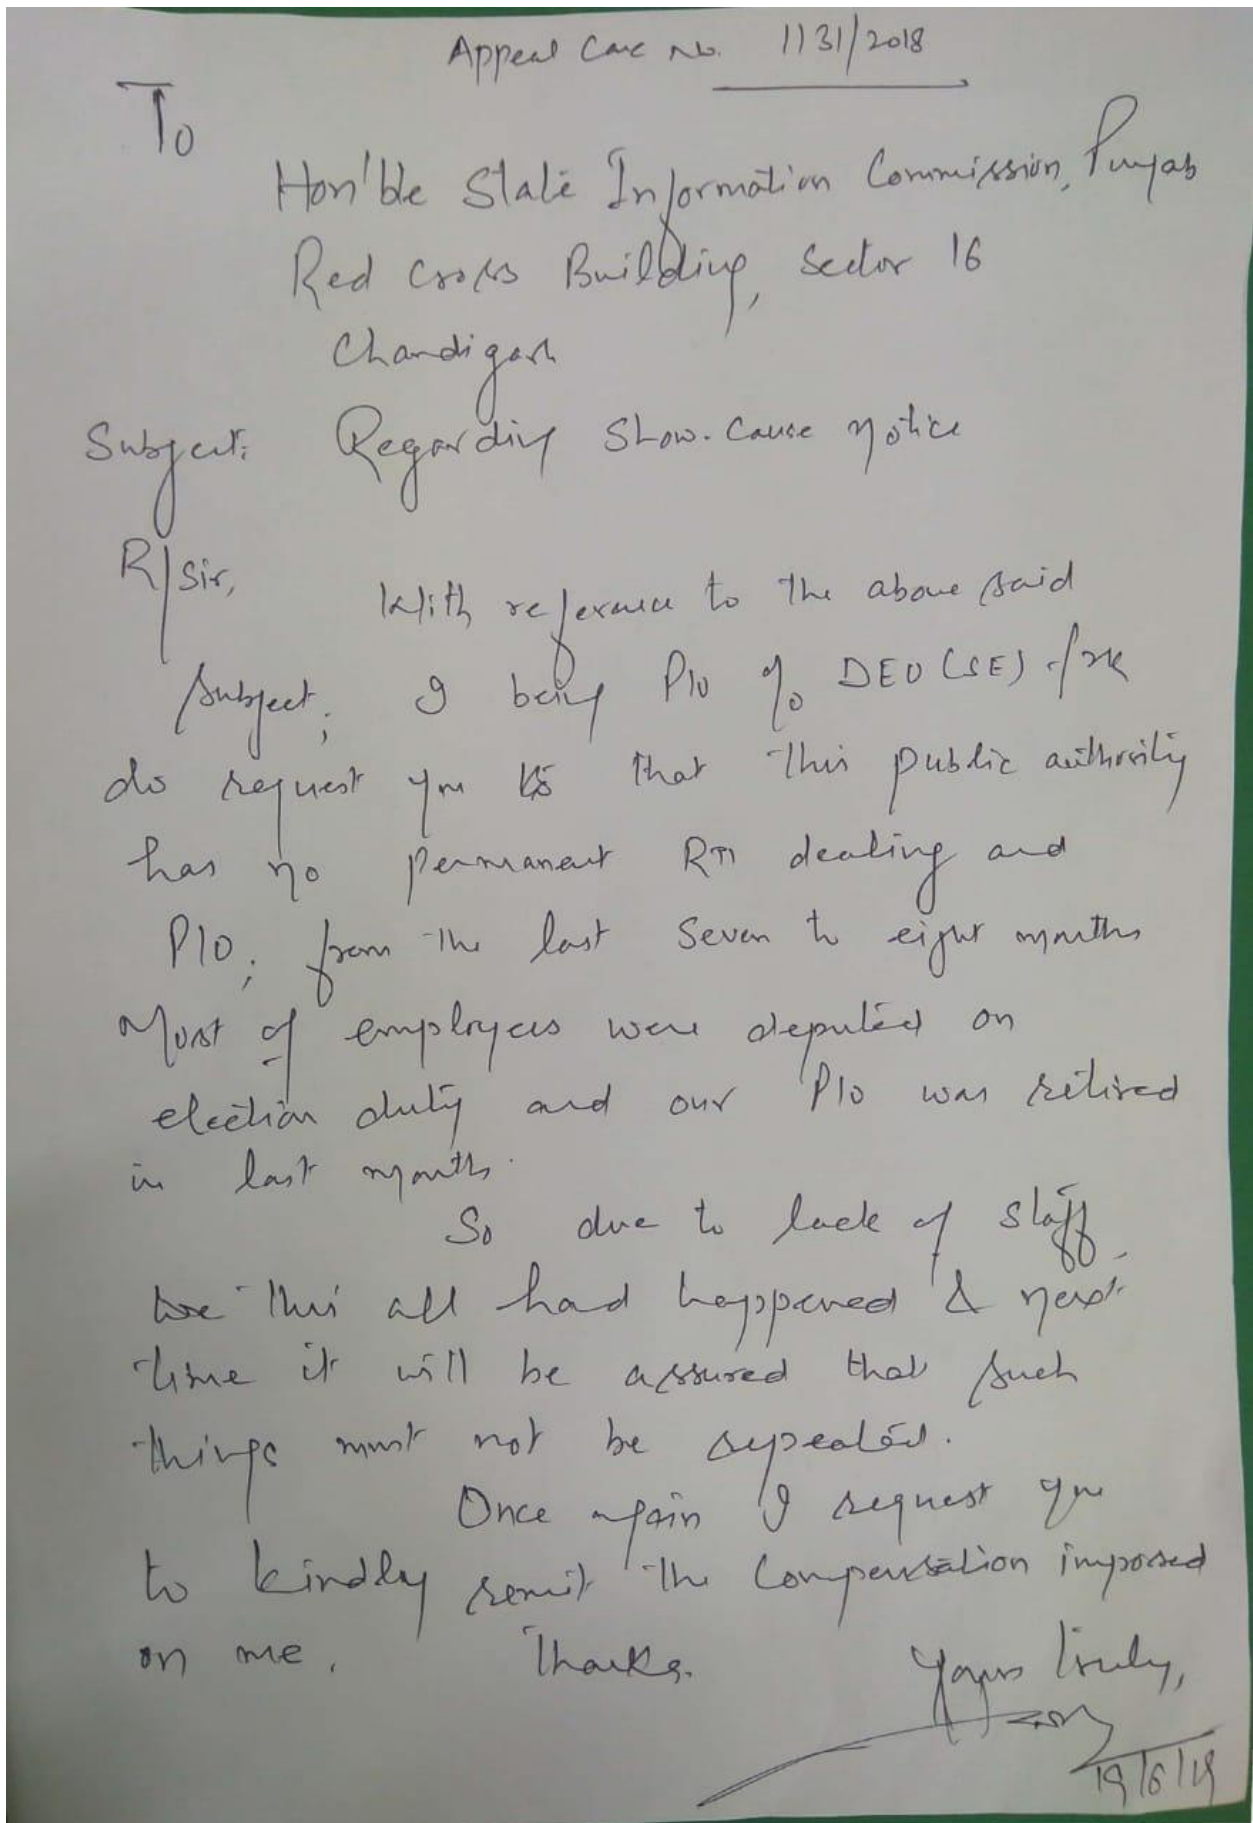 Appeal Case No. 1131/2018
To
Hon'ble State Information Commission, Punjab
Red Cross Building, Sector 16
Chandigarh
Subject: Regarding Show-Cause Notice
R/Sir,
With reference to the above said
subject, I being PIO % DEO (SE)
do request you that this public authority
has no permanent RTI dealing and
PIO, from the last seven to eight months
Most of employees were deputed on
election duty and our PIO was retired
in last months.
So due to lack of staff
this all had happened & next
time it will be assured that such
things must not be repeated.
Once again I request you
to kindly remit the compensation imposed
on me. Thanks. Yours truly,
19/6/19